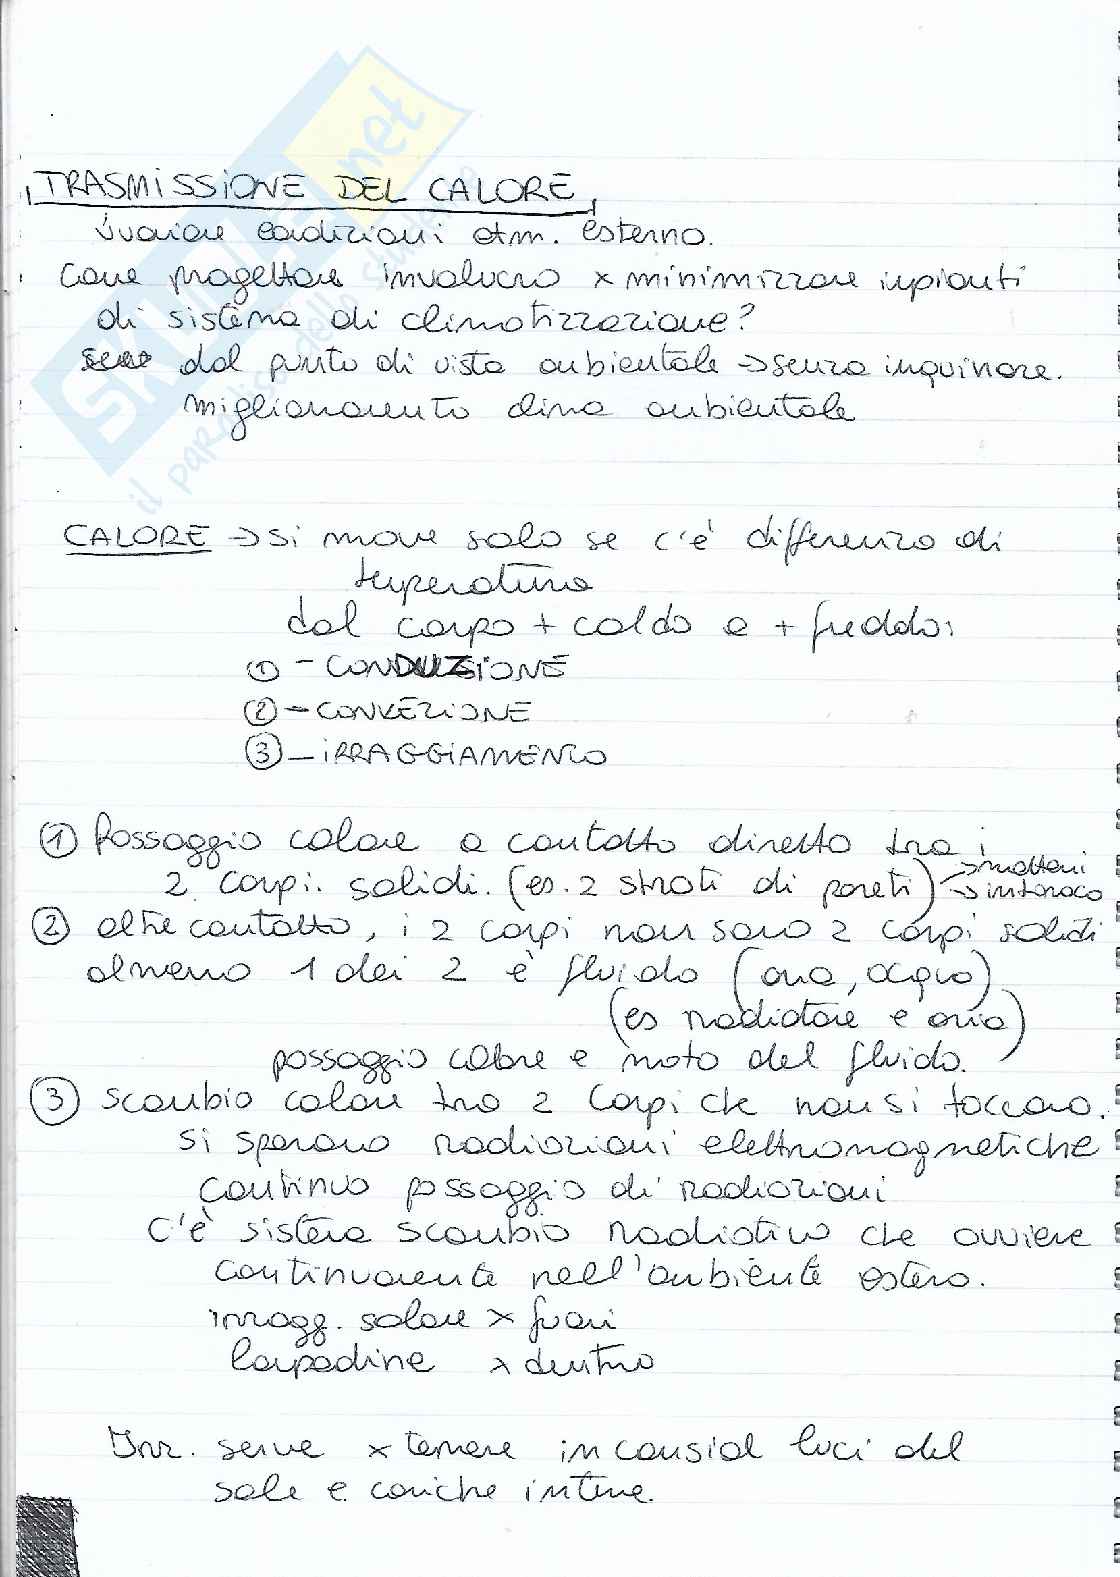 TRASMISSIONE DEL CALORE
svariare condizioni atm. esterno.
Come progettare involucro x minimizzare inpianti
di sistema di climatizzazione?
dal punto di vista anbientale → senza inquinare.
miglioramento clima anbientale
CALORE → si move solo se c'è differenza di
temperatura
dal corpo + caldo a + freddo:
① - CONDUZIONE
② - CONVEZIONE
③ - IRRAGGIAMENTO
① Passaggio calore a contatto diretto tra i
2 corpi. solidi. (es. 2 strati di pareti) → mattoni
→ intonaco
② oltre contatto, i 2 corpi non sono 2 corpi solidi
almeno 1 dei 2 è fluido (aria, acqua)
(es radiatore e aria)
passaggio calore e moto del fluido.
③ scambio calore tra 2 corpi che non si toccano.
si sparano radiazioni elettromagnetiche
continuo passaggio di radiazioni
C'è sistema scambio radiativo che avviene
continuamente nell'ambiente estero.
irragg. solare x fuori
lampadine x dentro
Irr. serve x tenere in consid luci del
sole e cariche interne.
SKUOLA.net
il paradiso dello studente